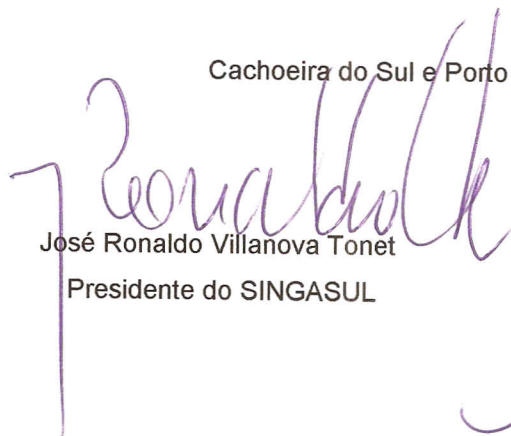 Cachoeira do Sul e Porto
José Ronaldo Villanova Tonet
Presidente do SINGASUL